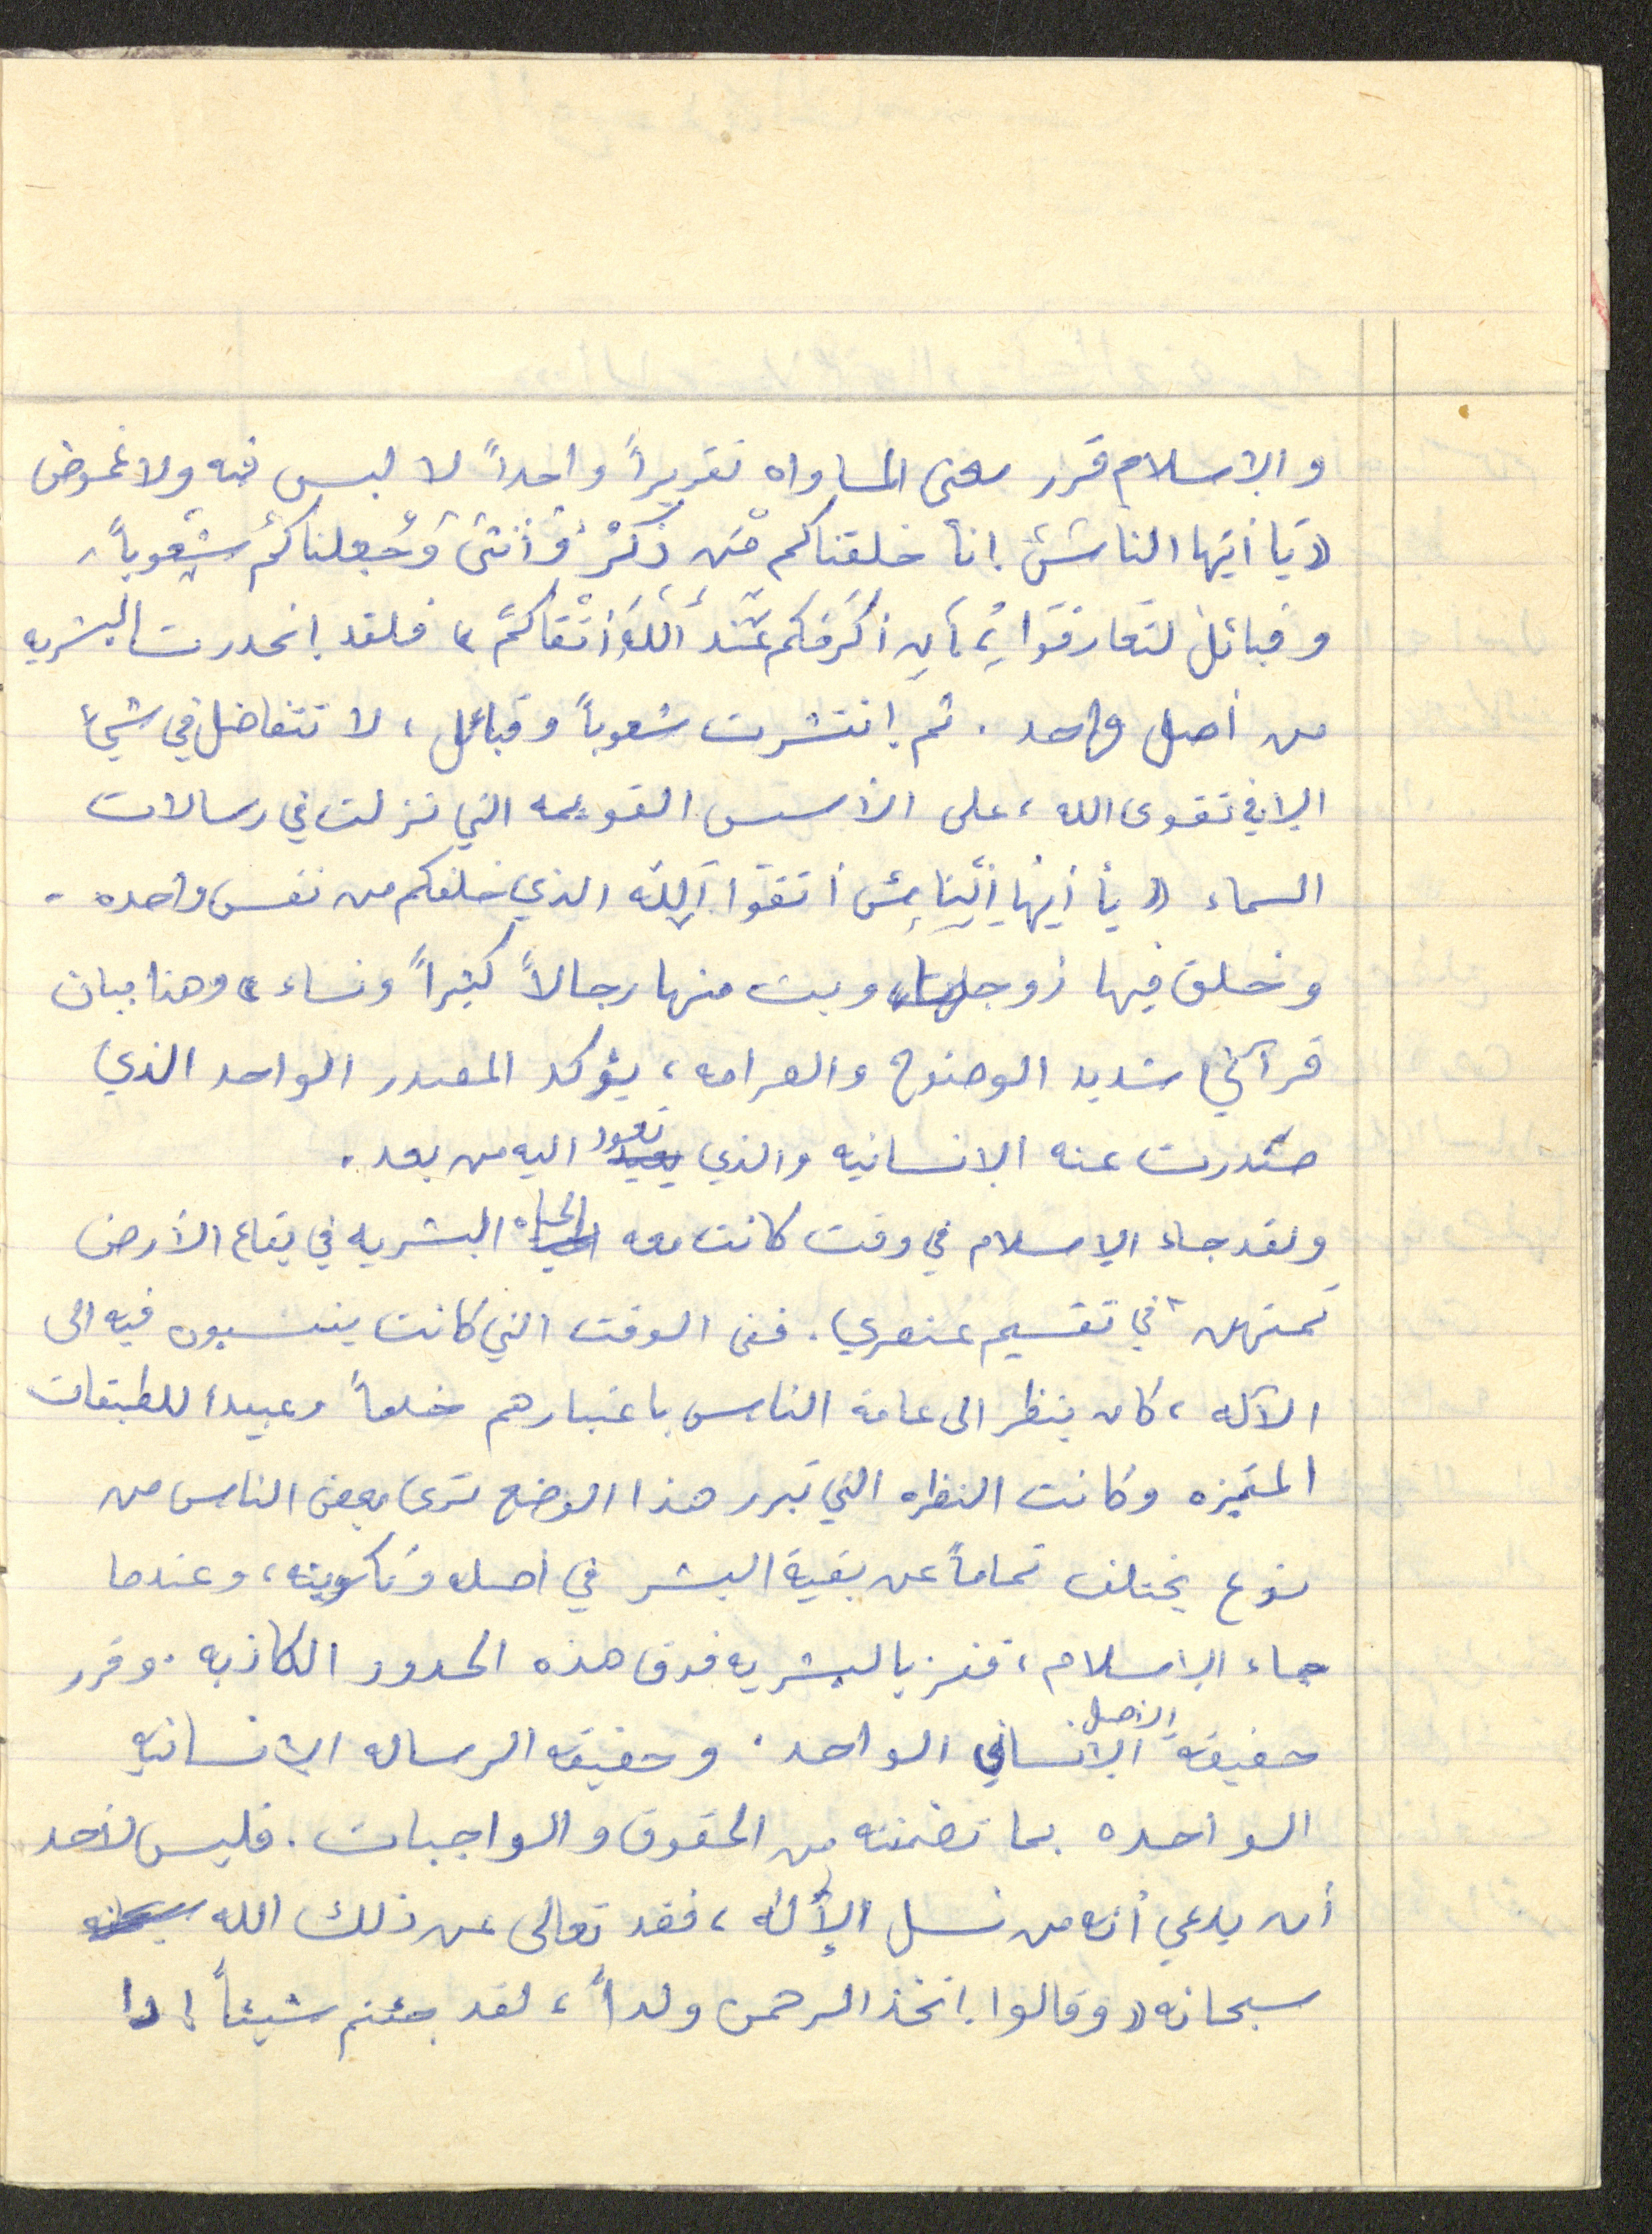 والإسلام قرر معنى المساواه تقريراً واحداً لا لبس فيه ولا غموض
« يَا أيّها الناسُ إنا خلقناكم مّن ذَكَرْ وَأنثىَ وَجَعلناكُمْ شُعُوباً
وقبائلَ لتَعارفَوا ، إن أكرَمَكم عَنْدَ اللهِ أتْقاكمْ » فلقد إنحدرت البشريه
من أصل واحد . ثم إنتشرت شعوباً وقبائل ، لا تتفاضل في شيء
إلا في تقوى الله ، على الأسس القويمه التي نزلت في رسالات
السماء « يأ أيهّا النّاسُ أتقوا اللّه الذي خلقكم من نفس واحده -
وخلق فيها زوجها، وبث منها رجالاً كثيراً ونساء » وهنا بيان
قرآني شديد الوضوح والصرامه ، يؤكد المصدر الواحد الذي
صَدرت عنه الإنسانيه والذي تعود اليه من بعد .
ولقد جاء الإسلام في وقت كانت معه الحياه البشريه في بقاع الأرض
تمتهن في تقسيم عنصري . ففى الوقت التي كانت ينسبون فيه الى
الآله ، كان ينظر الى عامة الناس باعتبارهم خلقاً وعبيداً للطبقات
المتميزه وكانت النظره التي تبرر هذا الوضع ترى بعض الناس من
نوع يختلف تماماً عن بقية البشر في أصله وتكوينه ، وعندما
جاء الإسلام ، قفز بالبشريه فوق هذه الحدود الكاذبه . وقرر
حقيقة الأصل الإنساني الواحد . وحقيقه الرساله الإنسانيه
الواحده بما تضمنته من الحقوق والواجبات . فليس لأحد
أن يدعي أنه من نسل الإلَه ، فقد تعالى عن ذلك الله سبحانه
سبحانه « وقالوا إتخذ الرحمن ولداً ، لقد جئتم شيئاً إدا